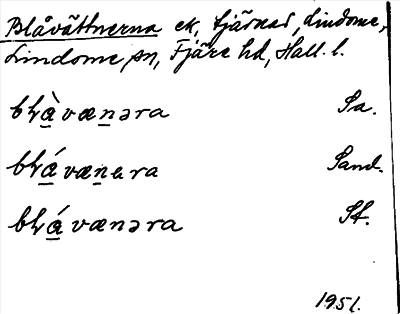 Blåvättnerna ek, tjärnar, Lindome,
Lindome sn, Fjäre hd, Hall. l.
bḷὰvænəra Sa.
bḷάvænɐra Sand.
bḷάvænəra St.
1951.